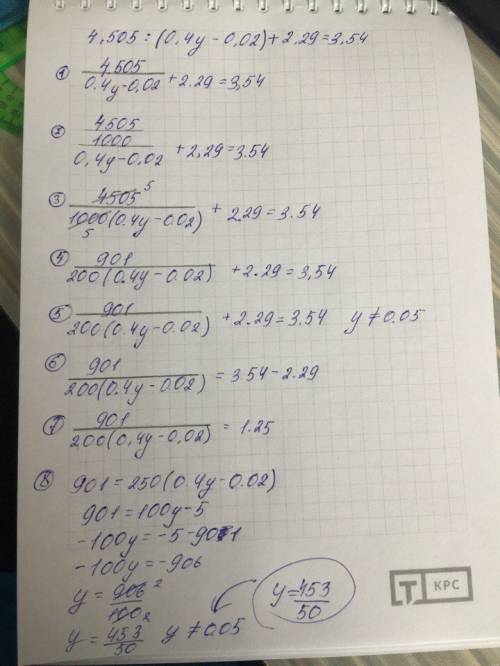 4,505 : (0,4y - 0,02) + 2,29 = 3,54
① 4,505 / 0.4y - 0,02 + 2.29 = 3,54
② 4505 / 1000 / 0,4y - 0,02 + 2,29 = 3.54
③ 4505 5 / 1000 5 (0.4y - 0.02) + 2.29 = 3.54
④ 901 / 200(0.4y - 0.02) + 2.29 = 3,54
⑤ 901 / 200(0.4y - 0.02) + 2.29 = 3.54 y ≠ 0.05
⑥ 901 / 200(0.4y - 0.02) = 3.54 - 2.29
⑦ 901 / 200(0,4y - 0,02) = 1.25
⑧ 901 = 250(0.4y - 0.02)
901 = 100y - 5
-100y = -5 - 901
-100y = -906
y = 906 2 / 100 2
y = 453 / 50 y ≠ 0.05
y = 453 / 50
Т КРС